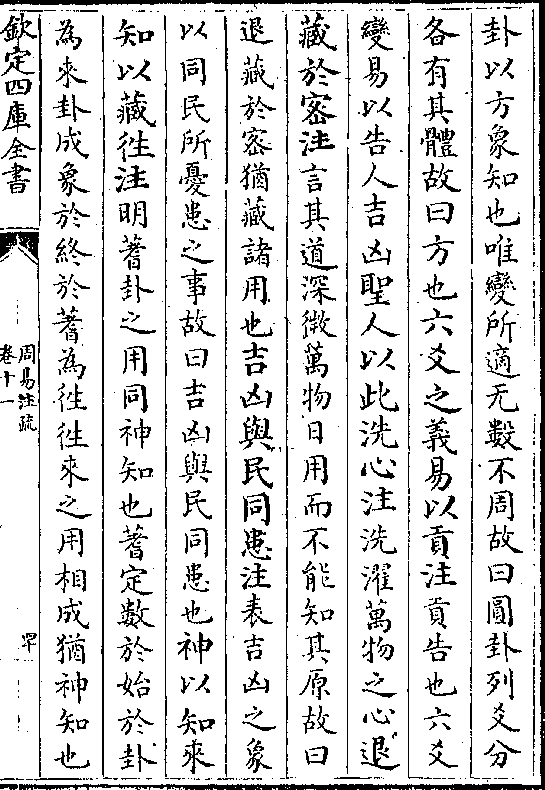 卦以方象知也唯變所適无數不周故曰圓卦列爻分
各有其體故曰方也六爻之義易以貢注貢告也六爻
變易以告人吉凶聖人以此洗心注洗濯萬物之心退
藏於密注言其道深微萬物日用而不能知其原故曰
退藏於密猶藏諸用也吉凶與民同患注表吉凶之象
以同民所憂患之事故曰吉凶與民同患也神以知來
知以藏徃注明蓍卦之用同神知也蓍定數於始於卦
為來卦成象於終於蓍為徃徃來之用相成猶神知也
欽定四庫全書
周易注疏
卷十一